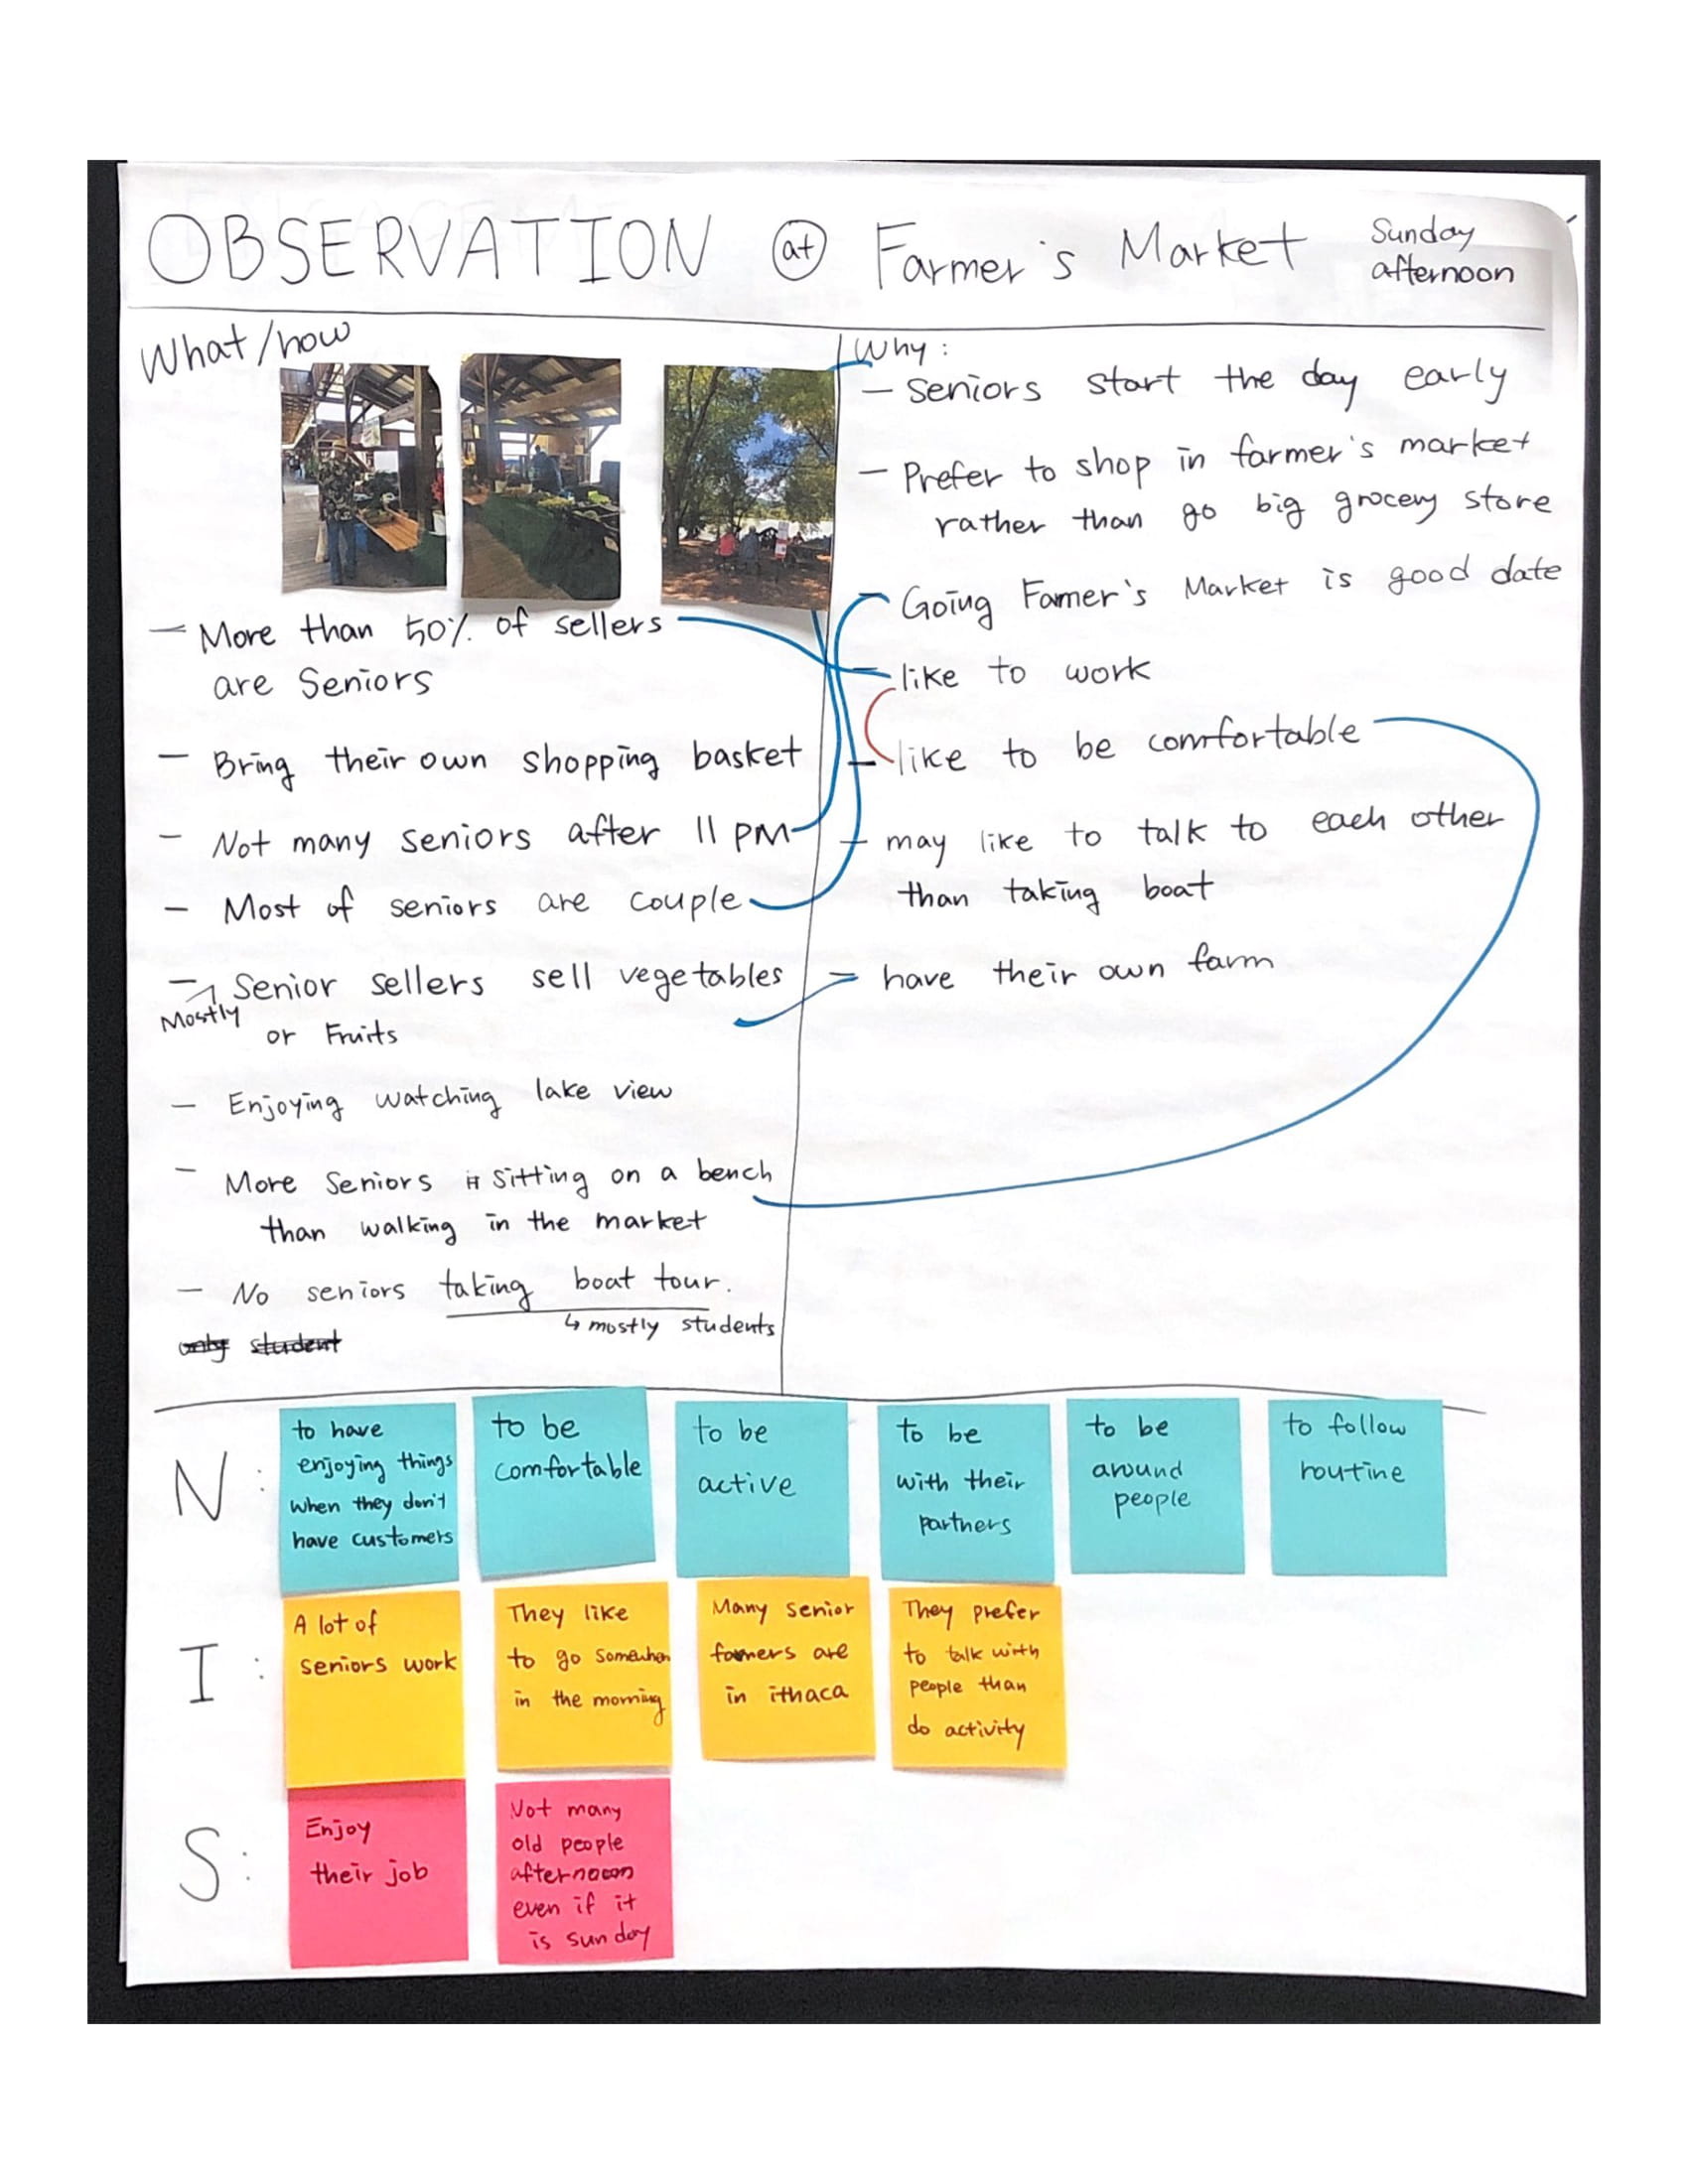 OBSERVATION at Farmer's Market
Sunday
afternoon
What/how
- More than 50% of sellers
are Seniors
- Bring their own shopping basket
- Not many seniors after 11 PM
- Most of seniors are couple
- Senior sellers sell vegetables
Mostly
or Fruits
- Enjoying watching lake view
- More Seniors sitting on a bench
than walking in the market
- No seniors taking boat tour.
↳ mostly students
only student
Why:
- Seniors start the day early
- Prefer to shop in farmer's market
rather than go big grocery store
- Going Famer's Market is good date
- like to work
- like to be comfortable
- may like to talk to each other
than taking boat
- have their own farm
N:
to have
enjoying things
when they don't
have customers
to be
comfortable
to be
active
to be
with their
partners
to be
around
people
to follow
routine
I:
A lot of
seniors work
They like
to go somewher
in the morning
Many senior
farmers are
in ithaca
They prefer
to talk with
people than
do activity
S:
Enjoy
their job
Not many
old people
afternoon
even if it
is sunday